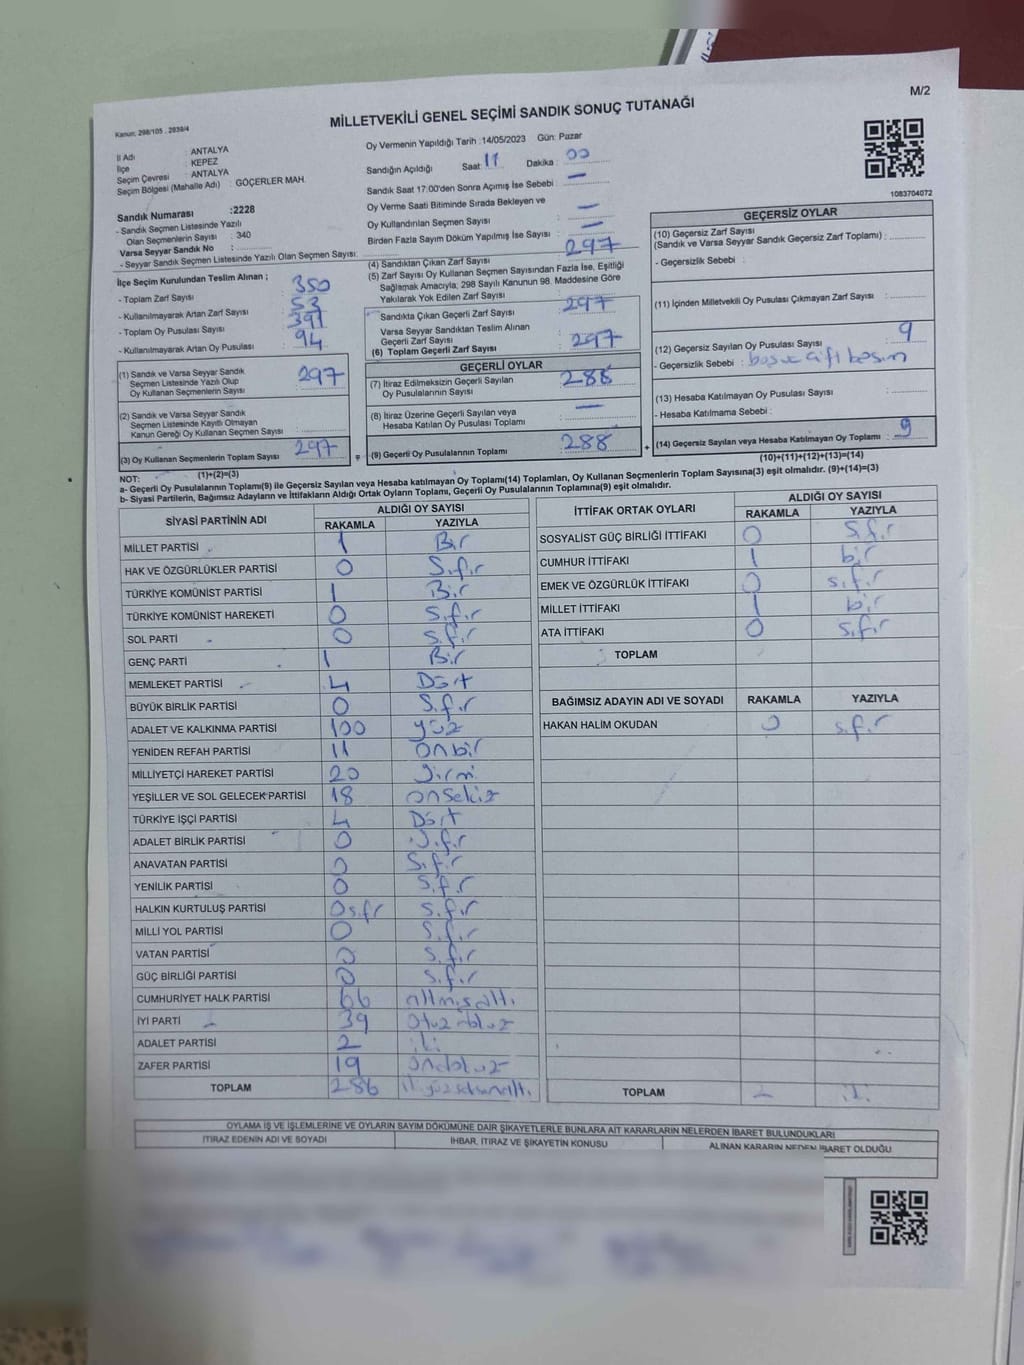 M/2
MİLLETVEKİLİ GENEL SEÇİMİ SANDIK SONUÇ TUTANAĞI
Kanun: 298/105 , 2839/4
İl Adı : ANTALYA
İlçe : KEPEZ
Seçim Çevresi : ANTALYA
Seçim Bölgesi (Mahalle Adı) : GÖÇERLER MAH.
Sandık Numarası :2228
- Sandık Seçmen Listesinde Yazılı
Olan Seçmenlerin Sayısı : 340
Varsa Seyyar Sandık No :
- Seyyar Sandık Seçmen Listesinde Yazılı Olan Seçmen Sayısı:
Oy Vermenin Yapıldığı Tarih :14/05/2023 Gün: Pazar
Sandığın Açıldığı Saat 17 Dakika : 00
Sandık Saat 17:00'den Sonra Açımış İse Sebebi : —
Oy Verme Saati Bitiminde Sırada Bekleyen ve
Oy Kullandırılan Seçmen Sayısı : —
Birden Fazla Sayım Döküm Yapılmış İse Sayısı : —
1083704072
İlçe Seçim Kurulundan Teslim Alınan ;
- Toplam Zarf Sayısı : 350
- Kullanılmayarak Artan Zarf Sayısı : 53
- Toplam Oy Pusulası Sayısı : 391
- Kullanılmayarak Artan Oy Pusulası : 94
(1) Sandık ve Varsa Seyyar Sandık
Seçmen Listesinde Yazılı Olup
Oy Kullanan Seçmenlerin Sayısı : 297
(2) Sandık ve Varsa Seyyar Sandık
Seçmen Listesinde Kayıtlı Olmayan
Kanun Gereği Oy Kullanan Seçmen Sayısı :
(3) Oy Kullanan Seçmenlerin Toplam Sayısı : 297
(1)+(2)=(3)
(4) Sandıktan Çıkan Zarf Sayısı : 297
(5) Zarf Sayısı Oy Kullanan Seçmen Sayısından Fazla İse, Eşitliği
Sağlamak Amacıyla; 298 Sayılı Kanunun 98. Maddesine Göre
Yakılarak Yok Edilen Zarf Sayısı :
Sandıkta Çıkan Geçerli Zarf Sayısı : 297
Varsa Seyyar Sandıktan Teslim Alınan
Geçerli Zarf Sayısı :
(6) Toplam Geçerli Zarf Sayısı : 297
GEÇERLİ OYLAR
(7) İtiraz Edilmeksizin Geçerli Sayılan
Oy Pusulalarının Sayısı : 288
(8) İtiraz Üzerine Geçerli Sayılan veya
Hesaba Katılan Oy Pusulası Toplamı : —
= (9) Geçerli Oy Pusulalarının Toplamı : 288
GEÇERSİZ OYLAR
(10) Geçersiz Zarf Sayısı
(Sandık ve Varsa Seyyar Sandık Geçersiz Zarf Toplamı) :
- Geçersizlik Sebebi :
(11) İçinden Milletvekili Oy Pusulası Çıkmayan Zarf Sayısı :
(12) Geçersiz Sayılan Oy Pusulası Sayısı : 9
- Geçersizlik Sebebi : boş ve çift basım
(13) Hesaba Katılmayan Oy Pusulası Sayısı :
- Hesaba Katılmama Sebebi :
+ (14) Geçersiz Sayılan veya Hesaba Katılmayan Oy Toplamı : 9
(10)+(11)+(12)+(13)=(14)
NOT:
a- Geçerli Oy Pusulalarının Toplamı(9) ile Geçersiz Sayılan veya Hesaba katılmayan Oy Toplamı(14) Toplamları, Oy Kullanan Seçmenlerin Toplam Sayısına(3) eşit olmalıdır. (9)+(14)=(3)
b- Siyasi Partilerin, Bağımsız Adayların ve İttifakların Aldığı Ortak Oyların Toplamı, Geçerli Oy Pusulalarının Toplamına(9) eşit olmalıdır.
SİYASİ PARTİNİN ADI ALDIĞI OY SAYISI
RAKAMLA YAZIYLA
MİLLET PARTİSİ 1 Bir
HAK VE ÖZGÜRLÜKLER PARTİSİ 0 Sıfır
TÜRKİYE KOMÜNİST PARTİSİ 1 Bir
TÜRKİYE KOMÜNİST HAREKETİ 0 Sıfır
SOL PARTİ 0 Sıfır
GENÇ PARTİ 1 Bir
MEMLEKET PARTİSİ 4 Dört
BÜYÜK BİRLİK PARTİSİ 0 Sıfır
ADALET VE KALKINMA PARTİSİ 100 yüz
YENİDEN REFAH PARTİSİ 11 onbir
MİLLİYETÇİ HAREKET PARTİSİ 20 yirmi
YEŞİLLER VE SOL GELECEK PARTİSİ 18 onsekiz
TÜRKİYE İŞÇİ PARTİSİ 4 Dört
ADALET BİRLİK PARTİSİ 0 Sıfır
ANAVATAN PARTİSİ 0 Sıfır
YENİLİK PARTİSİ 0 Sıfır
HALKIN KURTULUŞ PARTİSİ 0 sıfr Sıfır
MİLLİ YOL PARTİSİ 0 Sıfır
VATAN PARTİSİ 0 Sıfır
GÜÇ BİRLİĞİ PARTİSİ 0 Sıfır
CUMHURİYET HALK PARTİSİ 66 altmışaltı
İYİ PARTİ 39 Otuzdokuz
ADALET PARTİSİ 2 iki
ZAFER PARTİSİ 19 ondokuz
TOPLAM 286 ikiyüzseksenaltı
İTTİFAK ORTAK OYLARI ALDIĞI OY SAYISI
RAKAMLA YAZIYLA
SOSYALİST GÜÇ BİRLİĞİ İTTİFAKI 0 Sıfır
CUMHUR İTTİFAKI 1 bir
EMEK VE ÖZGÜRLÜK İTTİFAKI 0 sıfır
MİLLET İTTİFAKI 1 bir
ATA İTTİFAKI 0 sıfır
TOPLAM
BAĞIMSIZ ADAYIN ADI VE SOYADI RAKAMLA YAZIYLA
HAKAN HALİM OKUDAN 0 sıfır
TOPLAM 2 iki
OYLAMA İŞ VE İŞLEMLERİNE VE OYLARIN SAYIM DÖKÜMÜNE DAİR ŞİKAYETLERLE BUNLARA AİT KARARLARIN NELERDEN İBARET BULUNDUKLARI
İTİRAZ EDENİN ADI VE SOYADI İHBAR, İTİRAZ VE ŞİKAYETİN KONUSU ALINAN KARARIN NEDEN İBARET OLDUĞU